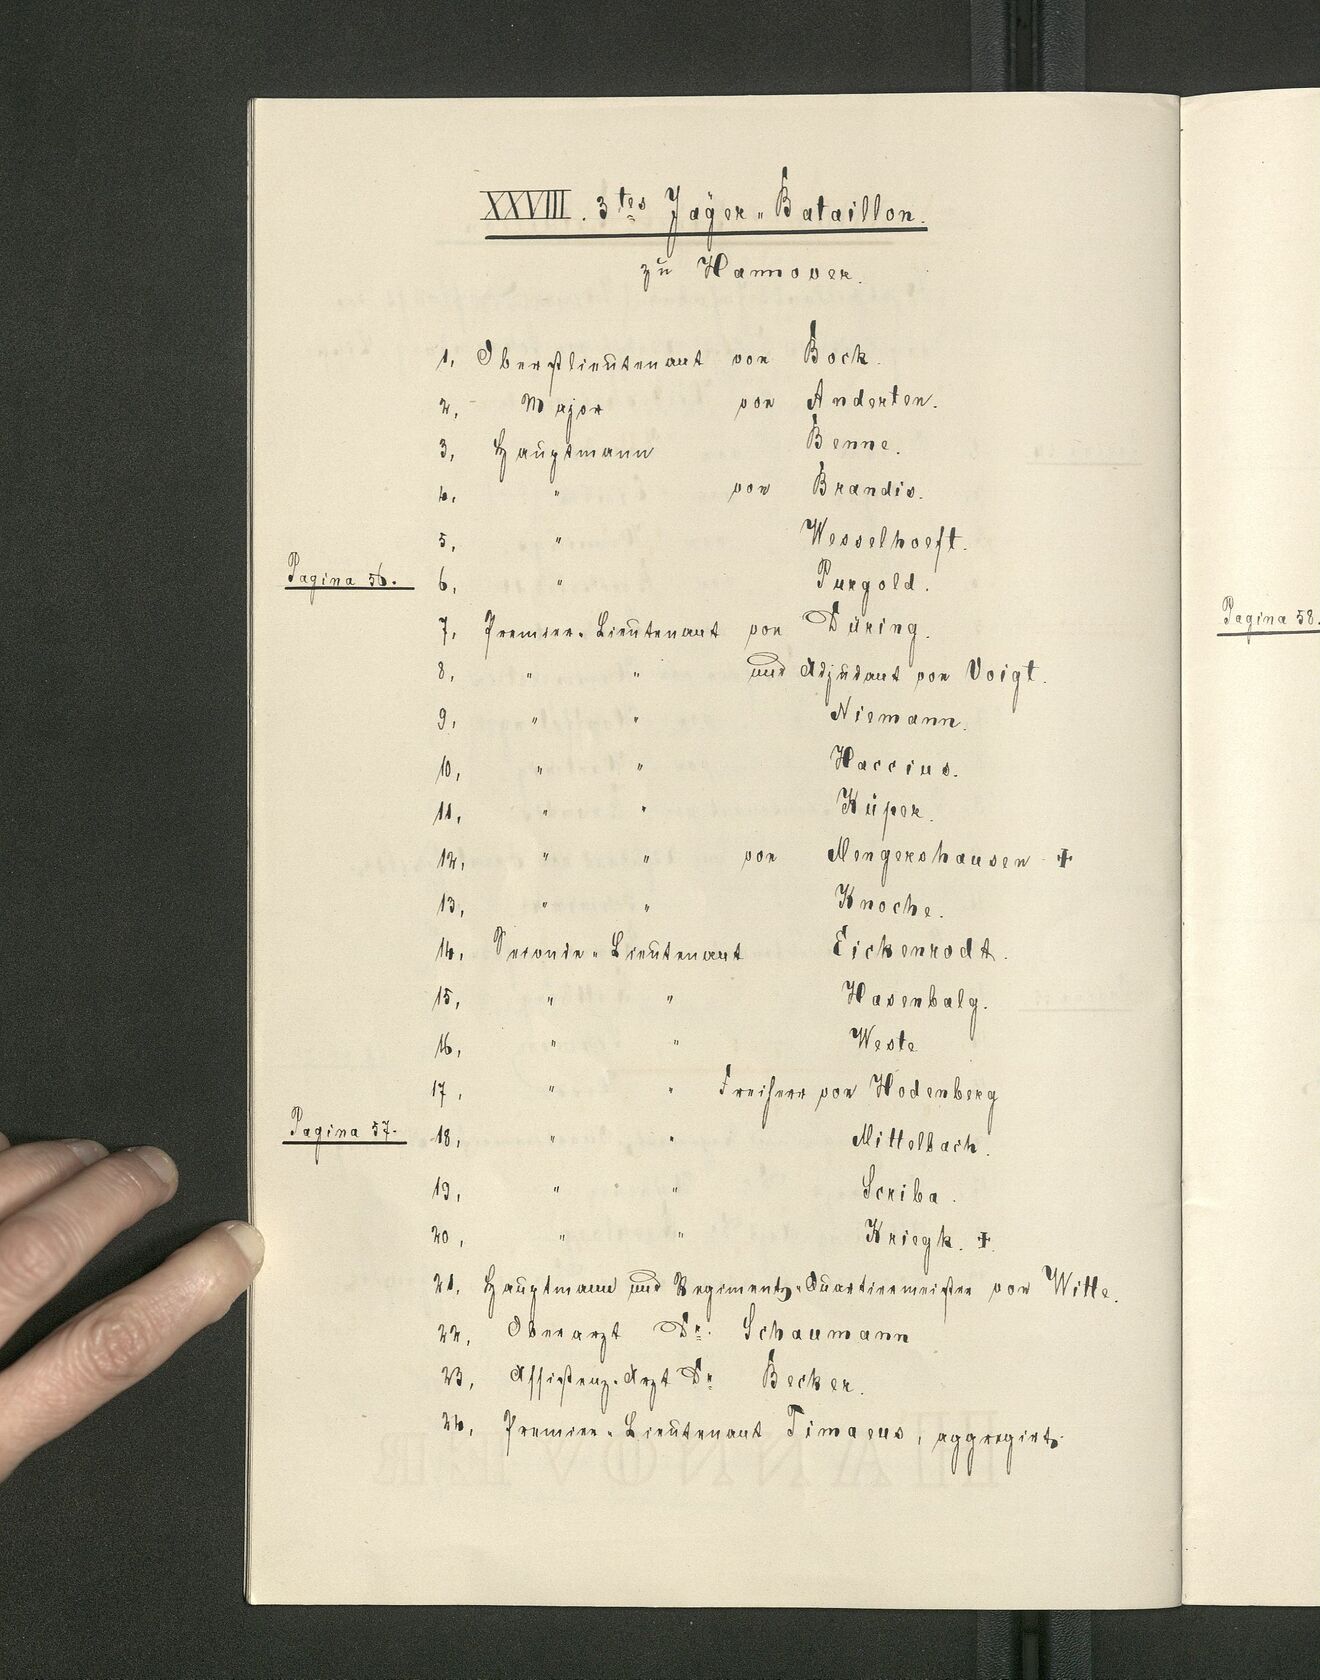 XXVIII. 3tes Jäger-Bataillon.
zu Hannover.
1, Oberstlieutenant von Bock.
2, Major von Anderten.
3, Hauptmann Benne.
4, " von Brandis.
5, " Wesselhoeft.
Pagina 56. 6, " Purgold.
7, Premier-Lieutenant von Düring.
8, " " und Adjudant von Voigt.
9, " " Niemann.
10, " " Haccius.
11, " " Küper.
12, " " von Mengershausen ‡
13, " " Knoche.
14, Seconde-Lieutenant Eickenrodt.
15, " " Hasenbalg.
16, " " Weste
17, " " Freiherr von Hodenberg
Pagina 57. 18, " " Mittelbach.
19, " " Scriba.
20, " " Kriegk. ‡
21, Hauptmann und Regiments-Quartiermeister von Witte.
22, Oberarzt Dr. Schaumann
23, Assistenz-Arzt Dr Becker.
24, Premier-Lieutenant Timaeus, aggregirt.
Pagina 58.